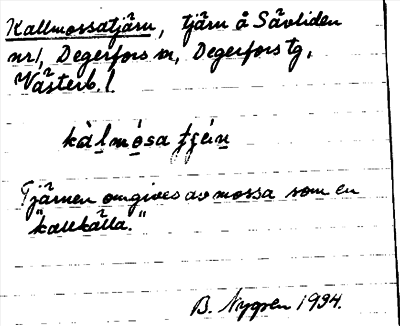 Kallmossatjärn, tjärn å Sävliden
nr 1, Degerfors sn, Degerfors tg,
Västerb. l.
kàlmósa
Tjärnen omgives av mossa som en
"kallkälla."
B. Nygren 1934.